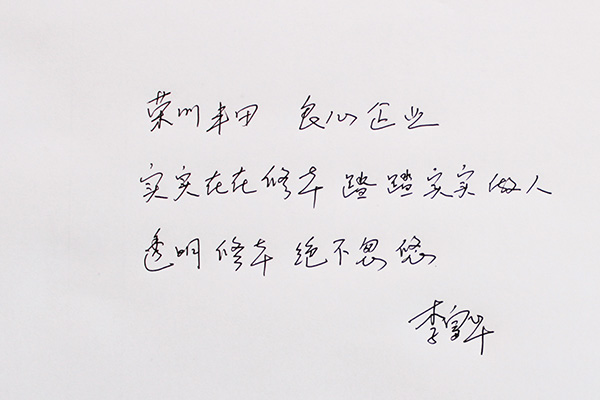 荣川丰田 良心企业
实实在在修车 踏踏实实做人
透明修车 绝不忽悠
李富华